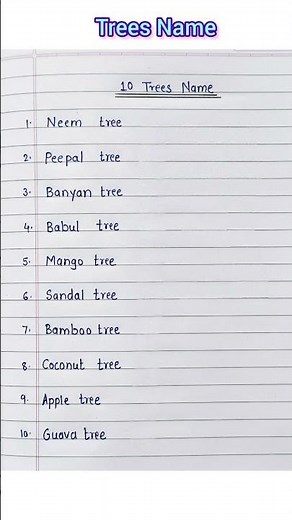 Trees Name
10 Trees Name
1. Neem tree
2. Peepal tree
3. Banyan tree
4. Babul tree
5. Mango tree
6. Sandal tree
7. Bamboo tree
8. Coconut tree
9. Apple tree
10. Guava tree